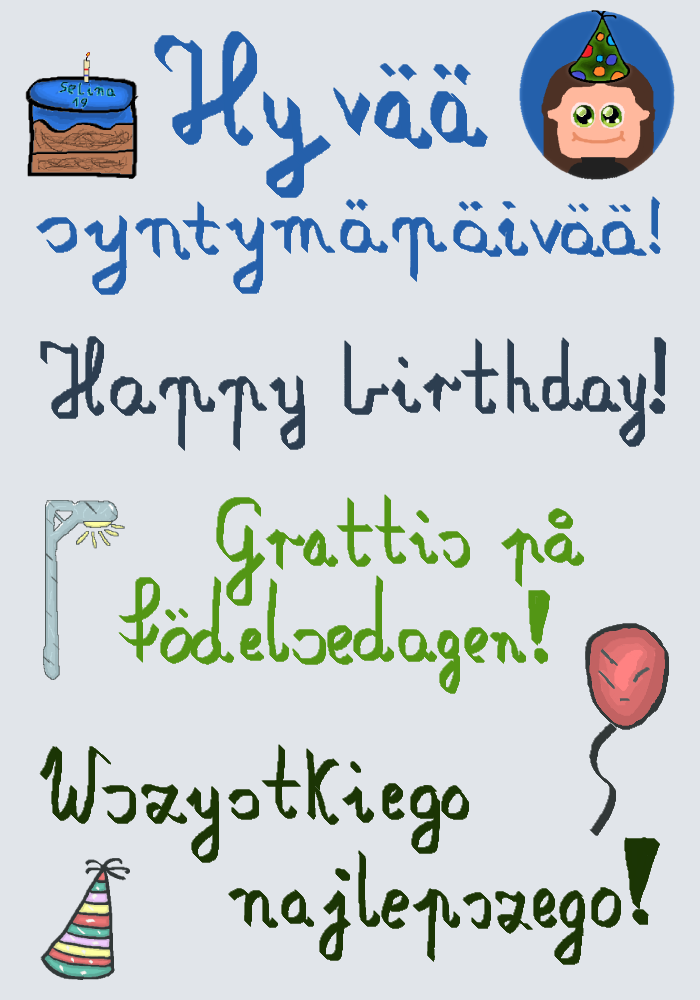 Selina
19
Hyvää
syntymäpäivää!
Happy birthday!
Grattis på
födelsedagen!
Wszystkiego
najlepszego!